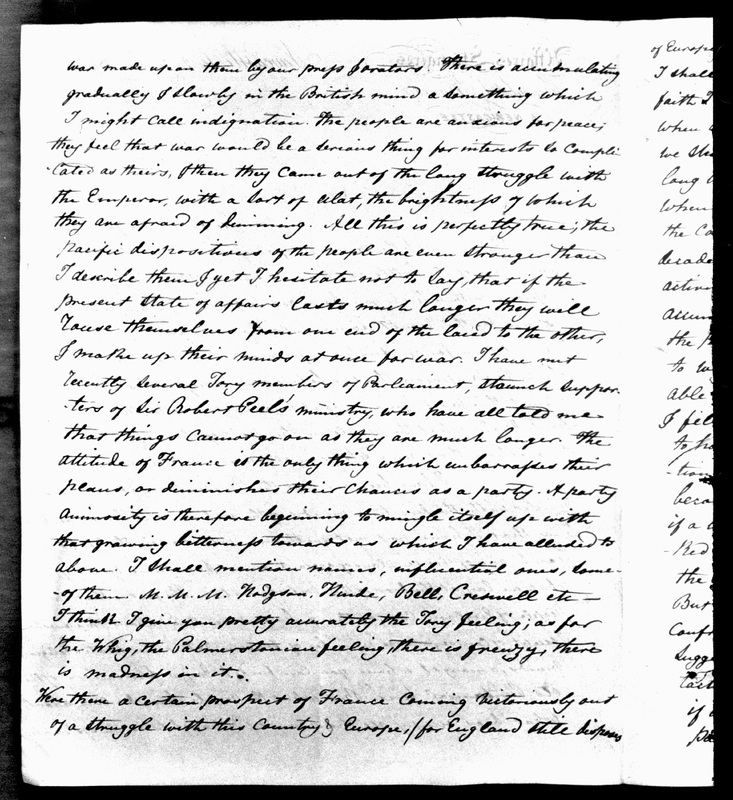 war made upon them by our press & orators. There is accumulating
gradually & slowly in the British mind a something which
I might call indignation. The people are anxious for peace;
they feel that war would be a serious thing for interests so compli
-cated as theirs, & then they came out of the long struggle with
the Emperor, with a sort of eclat, the brightness of which
they are afraid of dimming. All this is perfectly true; the
pacific dispositions of the people are even stronger than
I describe them & yet I hesitate not to say, that if the
present state of affairs lasts much longer they will
rouse themselves from one end of the land to the other,
& make up their minds at once for war. I have met
recently several Tory members of Parliament, staunch suppor-
-ters of Sir Robert Peel's ministry, who have all told me
that things cannot go on as they are much longer. The
attitude of France is the only thing which embarrasses their
plans, or diminishes their chances as a party. A party
animosity is therefore beginning to mingle itself up with
that growing bitterness towards us which I have alluded to
above. I shall mention names, influential ones, some-
-of them M. M. M. Hodgson, Hinde, Bell, Creswell etc —
I think I give you pretty accurately the Tory feeling; as for
the Whig, the Palmerstonian feeling, there is frenzy, there
is madness in it.
Were there a certain prospect of France coming victoriously out
of a struggle with this Country & Europe, (for England still disposes
of Europe
I shall
faith I
when
we sha
long
when
the Co
decade
active
accum
the p
to
able
I fel
to ha
tion
beca
if a
-ked
the
But
Confr
sugg
if